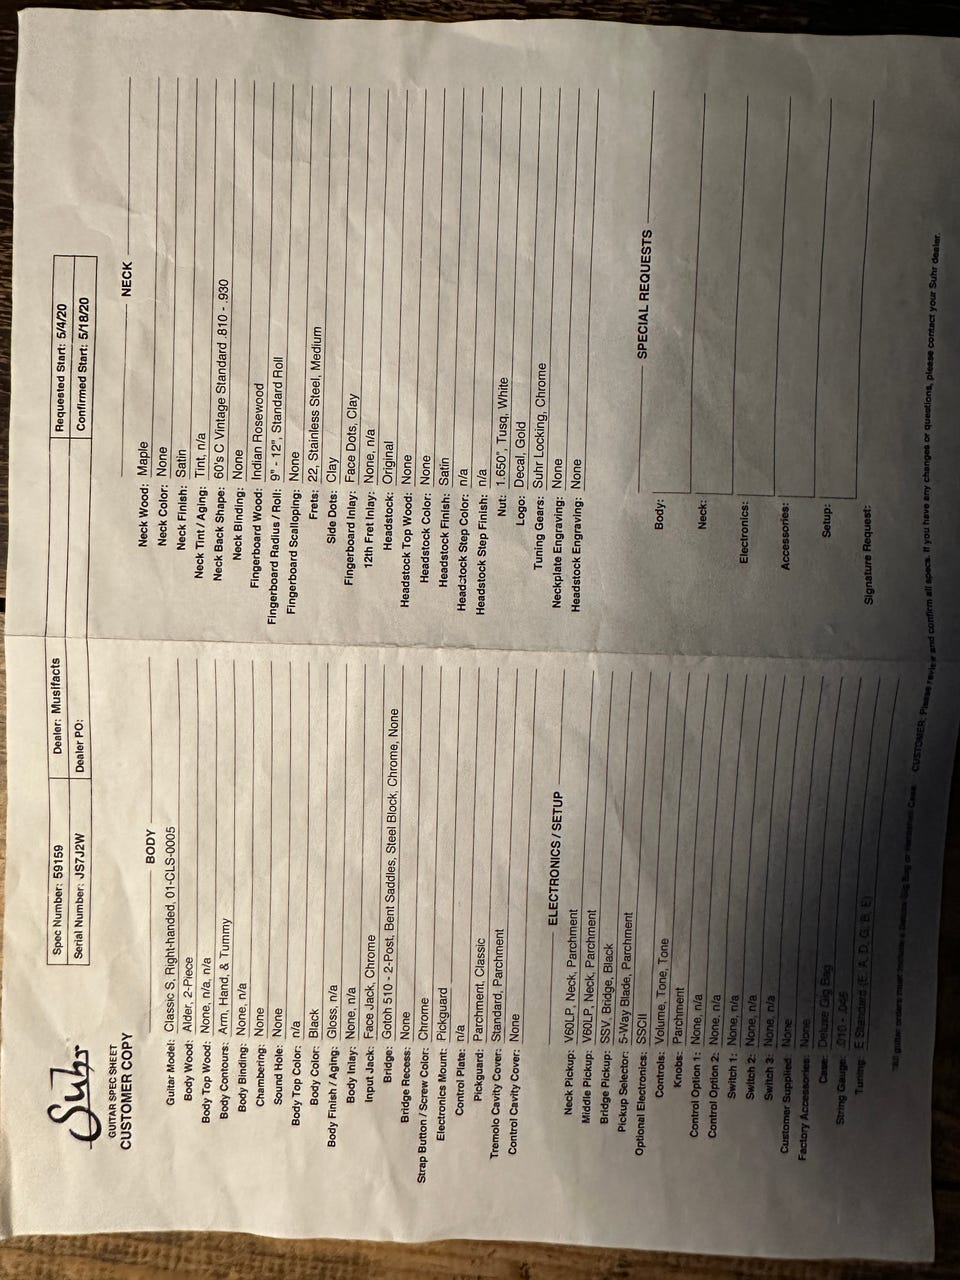 Suhr
GUITAR SPEC SHEET
CUSTOMER COPY
Spec Number: 59159 Dealer: Musifacts Requested Start: 5/4/20
Serial Number: JS7J2W Dealer PO: Confirmed Start: 5/18/20
BODY
Guitar Model: Classic S, Right-handed, 01-CLS-0005
Body Wood: Alder, 2-Piece
Body Top Wood: None, n/a, n/a
Body Contours: Arm, Hand, & Tummy
Body Binding: None, n/a
Chambering: None
Sound Hole: None
Body Top Color: n/a
Body Color: Black
Body Finish / Aging: Gloss, n/a
Body Inlay: None, n/a
Input Jack: Face Jack, Chrome
Bridge: Gotoh 510 - 2-Post, Bent Saddles, Steel Block, Chrome, None
Bridge Recess: None
Strap Button / Screw Color: Chrome
Electronics Mount: Pickguard
Control Plate: n/a
Pickguard: Parchment, Classic
Tremolo Cavity Cover: Standard, Parchment
Control Cavity Cover: None
ELECTRONICS / SETUP
Neck Pickup: V60LP, Neck, Parchment
Middle Pickup: V60LP, Neck, Parchment
Bridge Pickup: SSV, Bridge, Black
Pickup Selector: 5-Way Blade, Parchment
Optional Electronics: SSCII
Controls: Volume, Tone, Tone
Knobs: Parchment
Control Option 1: None, n/a
Control Option 2: None, n/a
Switch 1: None, n/a
Switch 2: None, n/a
Switch 3: None, n/a
Customer Supplied: None
Factory Accessories: None
Case: Deluxe Gig Bag
String Gauge: .010 - .046
Tuning: E Standard (E, A, D, G, B, E)
NECK
Neck Wood: Maple
Neck Color: None
Neck Finish: Satin
Neck Tint / Aging: Tint, n/a
Neck Back Shape: 60's C Vintage Standard .810 - .930
Neck Binding: None
Fingerboard Wood: Indian Rosewood
Fingerboard Radius / Roll: 9" - 12", Standard Roll
Fingerboard Scalloping: None
Frets: 22, Stainless Steel, Medium
Side Dots: Clay
Fingerboard Inlay: Face Dots, Clay
12th Fret Inlay: None, n/a
Headstock: Original
Headstock Top Wood: None
Headstock Color: None
Headstock Finish: Satin
Headstock Step Color: n/a
Headstock Step Finish: n/a
Nut: 1.650", Tusq, White
Logo: Decal, Gold
Tuning Gears: Suhr Locking, Chrome
Neckplate Engraving: None
Headstock Engraving: None
SPECIAL REQUESTS
Body:
Neck:
Electronics:
Accessories:
Setup:
Signature Request:
*All guitar orders must include a Deluxe Gig Bag or Case. CUSTOMER: Please review and confirm all specs. If you have any changes or questions, please contact your Suhr dealer.